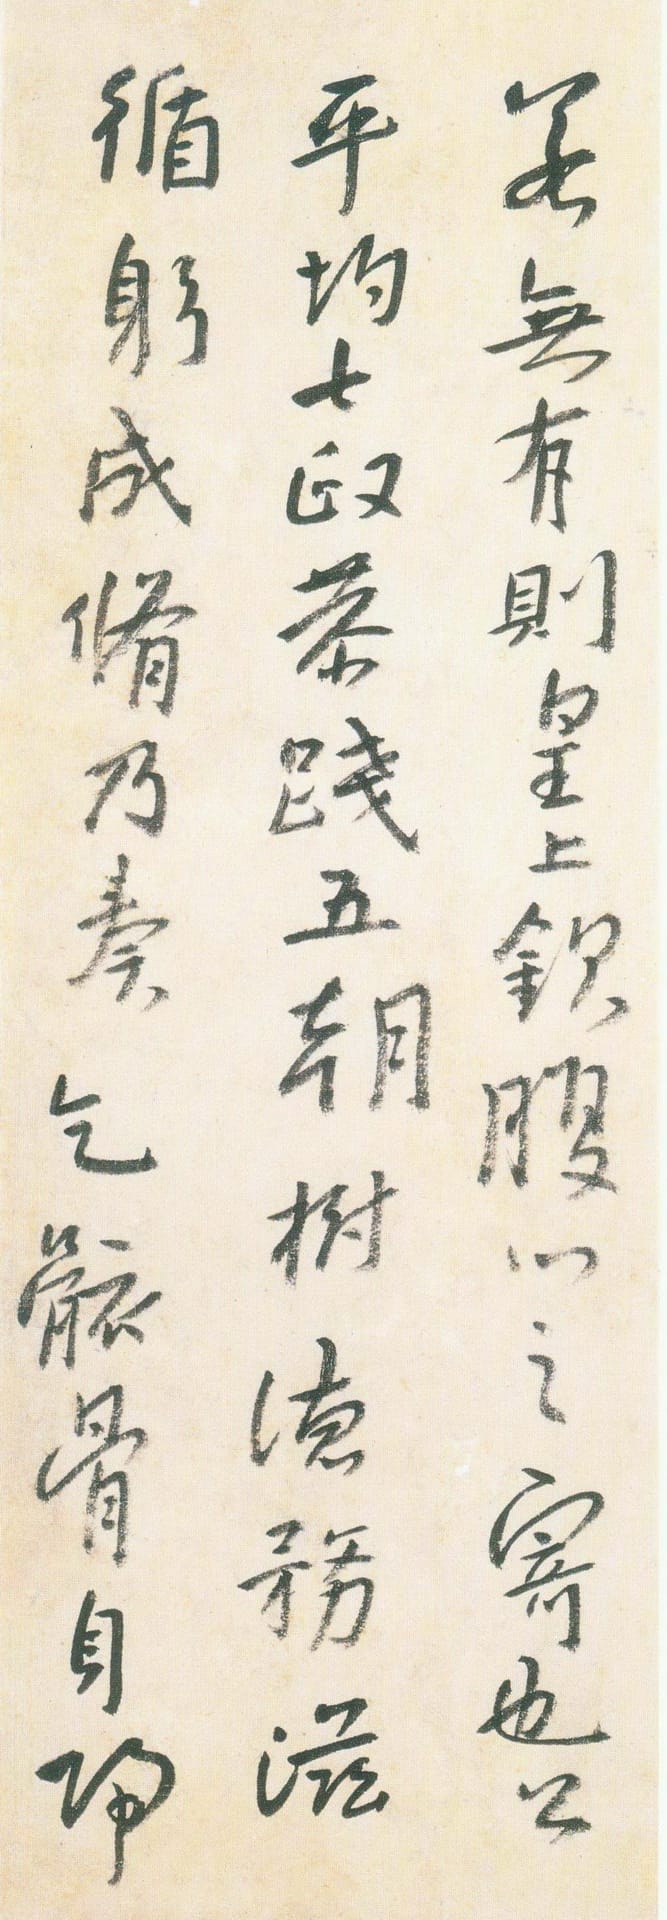 若無有則皇上欽腹心之寄也公
平均七政恭踐五朝樹德務滋
循躬成脩乃奏乞骸骨自歸